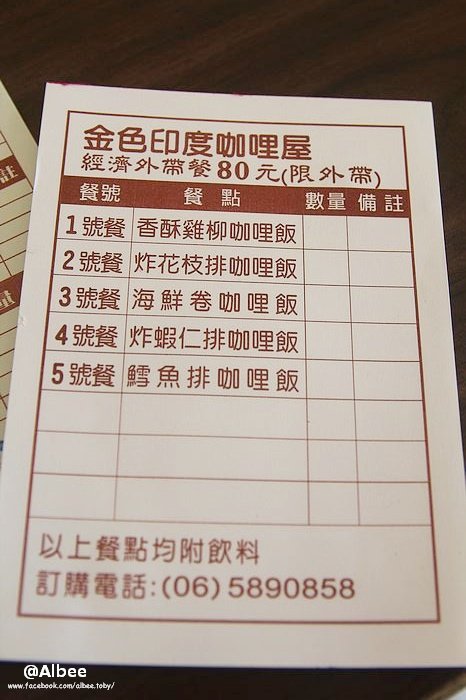 金色印度咖哩屋
經濟外帶餐80元(限外帶)
餐號 餐點 數量 備註
1號餐 香酥雞柳咖哩飯
2號餐 炸花枝排咖哩飯
3號餐 海鮮卷咖哩飯
4號餐 炸蝦仁排咖哩飯
5號餐 鱈魚排咖哩飯
以上餐點均附飲料
訂購電話:(06)5890858
註
@Albee
www.facebook.com/albee.toby/